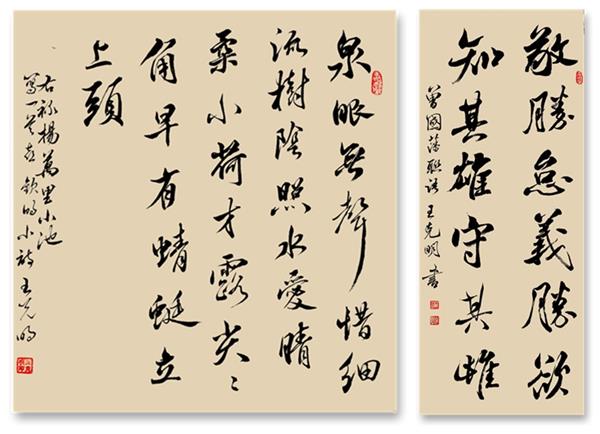 敬勝怠義勝欲
知其雄守其雌
曾國藩聯語 王克明書
泉眼無聲惜細
流樹陰照水愛晴
柔小荷才露尖〻
角早有蜻蜓立
上頭
右錄楊萬里小池
寫一小詩 王克明